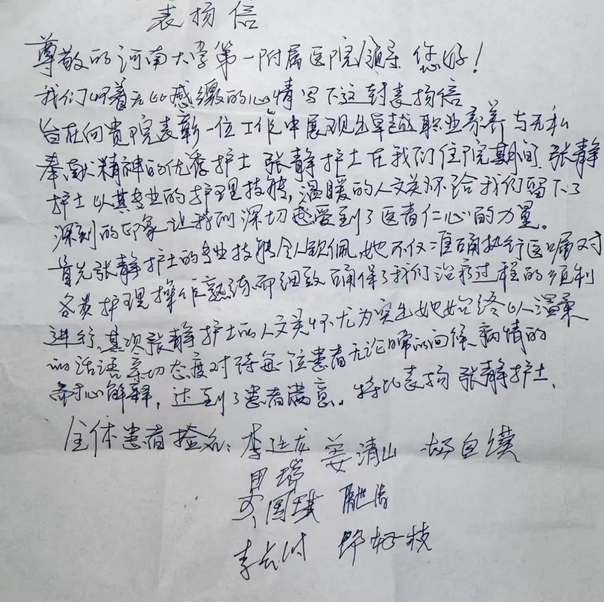 表扬信
尊敬的河南大学第一附属医院领导 您好!
我们怀着无比感激的心情写下这封表扬信
旨在向贵院表彰一位工作中展现出卓越职业素养与无私
奉献精神的优秀护士 张静护士在我们住院期间,张静
护士以其专业的护理技能,温暖的人文关怀给我们留下了
深刻的印象让我们深切感受到了医者仁心的力量。
首先张静护士的专业技能令人钦佩,她不仅准确执行医嘱对
各类护理操作熟练而细致确保了我们治疗过程的顺利
进行,其次张静护士的人文关怀尤为突出她始终以温柔
的话语亲切态度对待每一位患者无论 的问候,病情的
耐心解释,达到了患者满意。特此表扬 张静护士.
全体患者签名: 李进龙 姜清山
国琪
李 枝